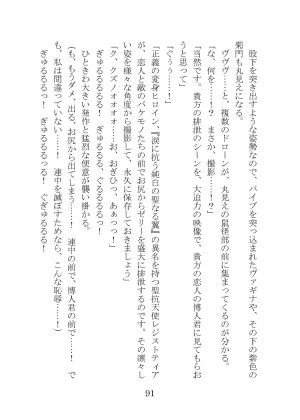 股下を突き出すような姿勢なので、バイブを突っ込まれたヴァギナや、その下の紫色の
菊門も丸見えになる。
ヴヴヴ……と、複数のドローンが、丸見えの鼠径部の前に集まってくるのが分かる。
「な、何を……！？　まさか、撮影……！？」
「当然です。貴方の排泄のシーンを、大迫力の映像で、貴方の恋人の博人君に見てもらお
「ぐぅぅ……！」
「正義の変身ヒロイン『涙に抗う純白の聖なる翼』の異名を持つ聖抗天使レジストティア
が、恋人と敵のバケモノたちの前でお尻からゼリーを盛大に排泄するのです。その凛々し
い姿を様々な角度から撮影して、永久に保存しておきましょう」
「ク、クズノォオオオ……お、おぎひっ、あぁっっ！」
ぎゅるるるる！　ぎゅるるるる！
ひときわ大きい発作と猛烈な便意が襲い掛かる。
（も、もうダメ、出る、お尻から出てしまう……！　連中の前で、博人君の前で……！　で
も、私は間違っていない……！　連中を滅ぼすためなら、こんな恥辱……！）
ぎゅるるるっ！　ぐぎゅるるる！
91